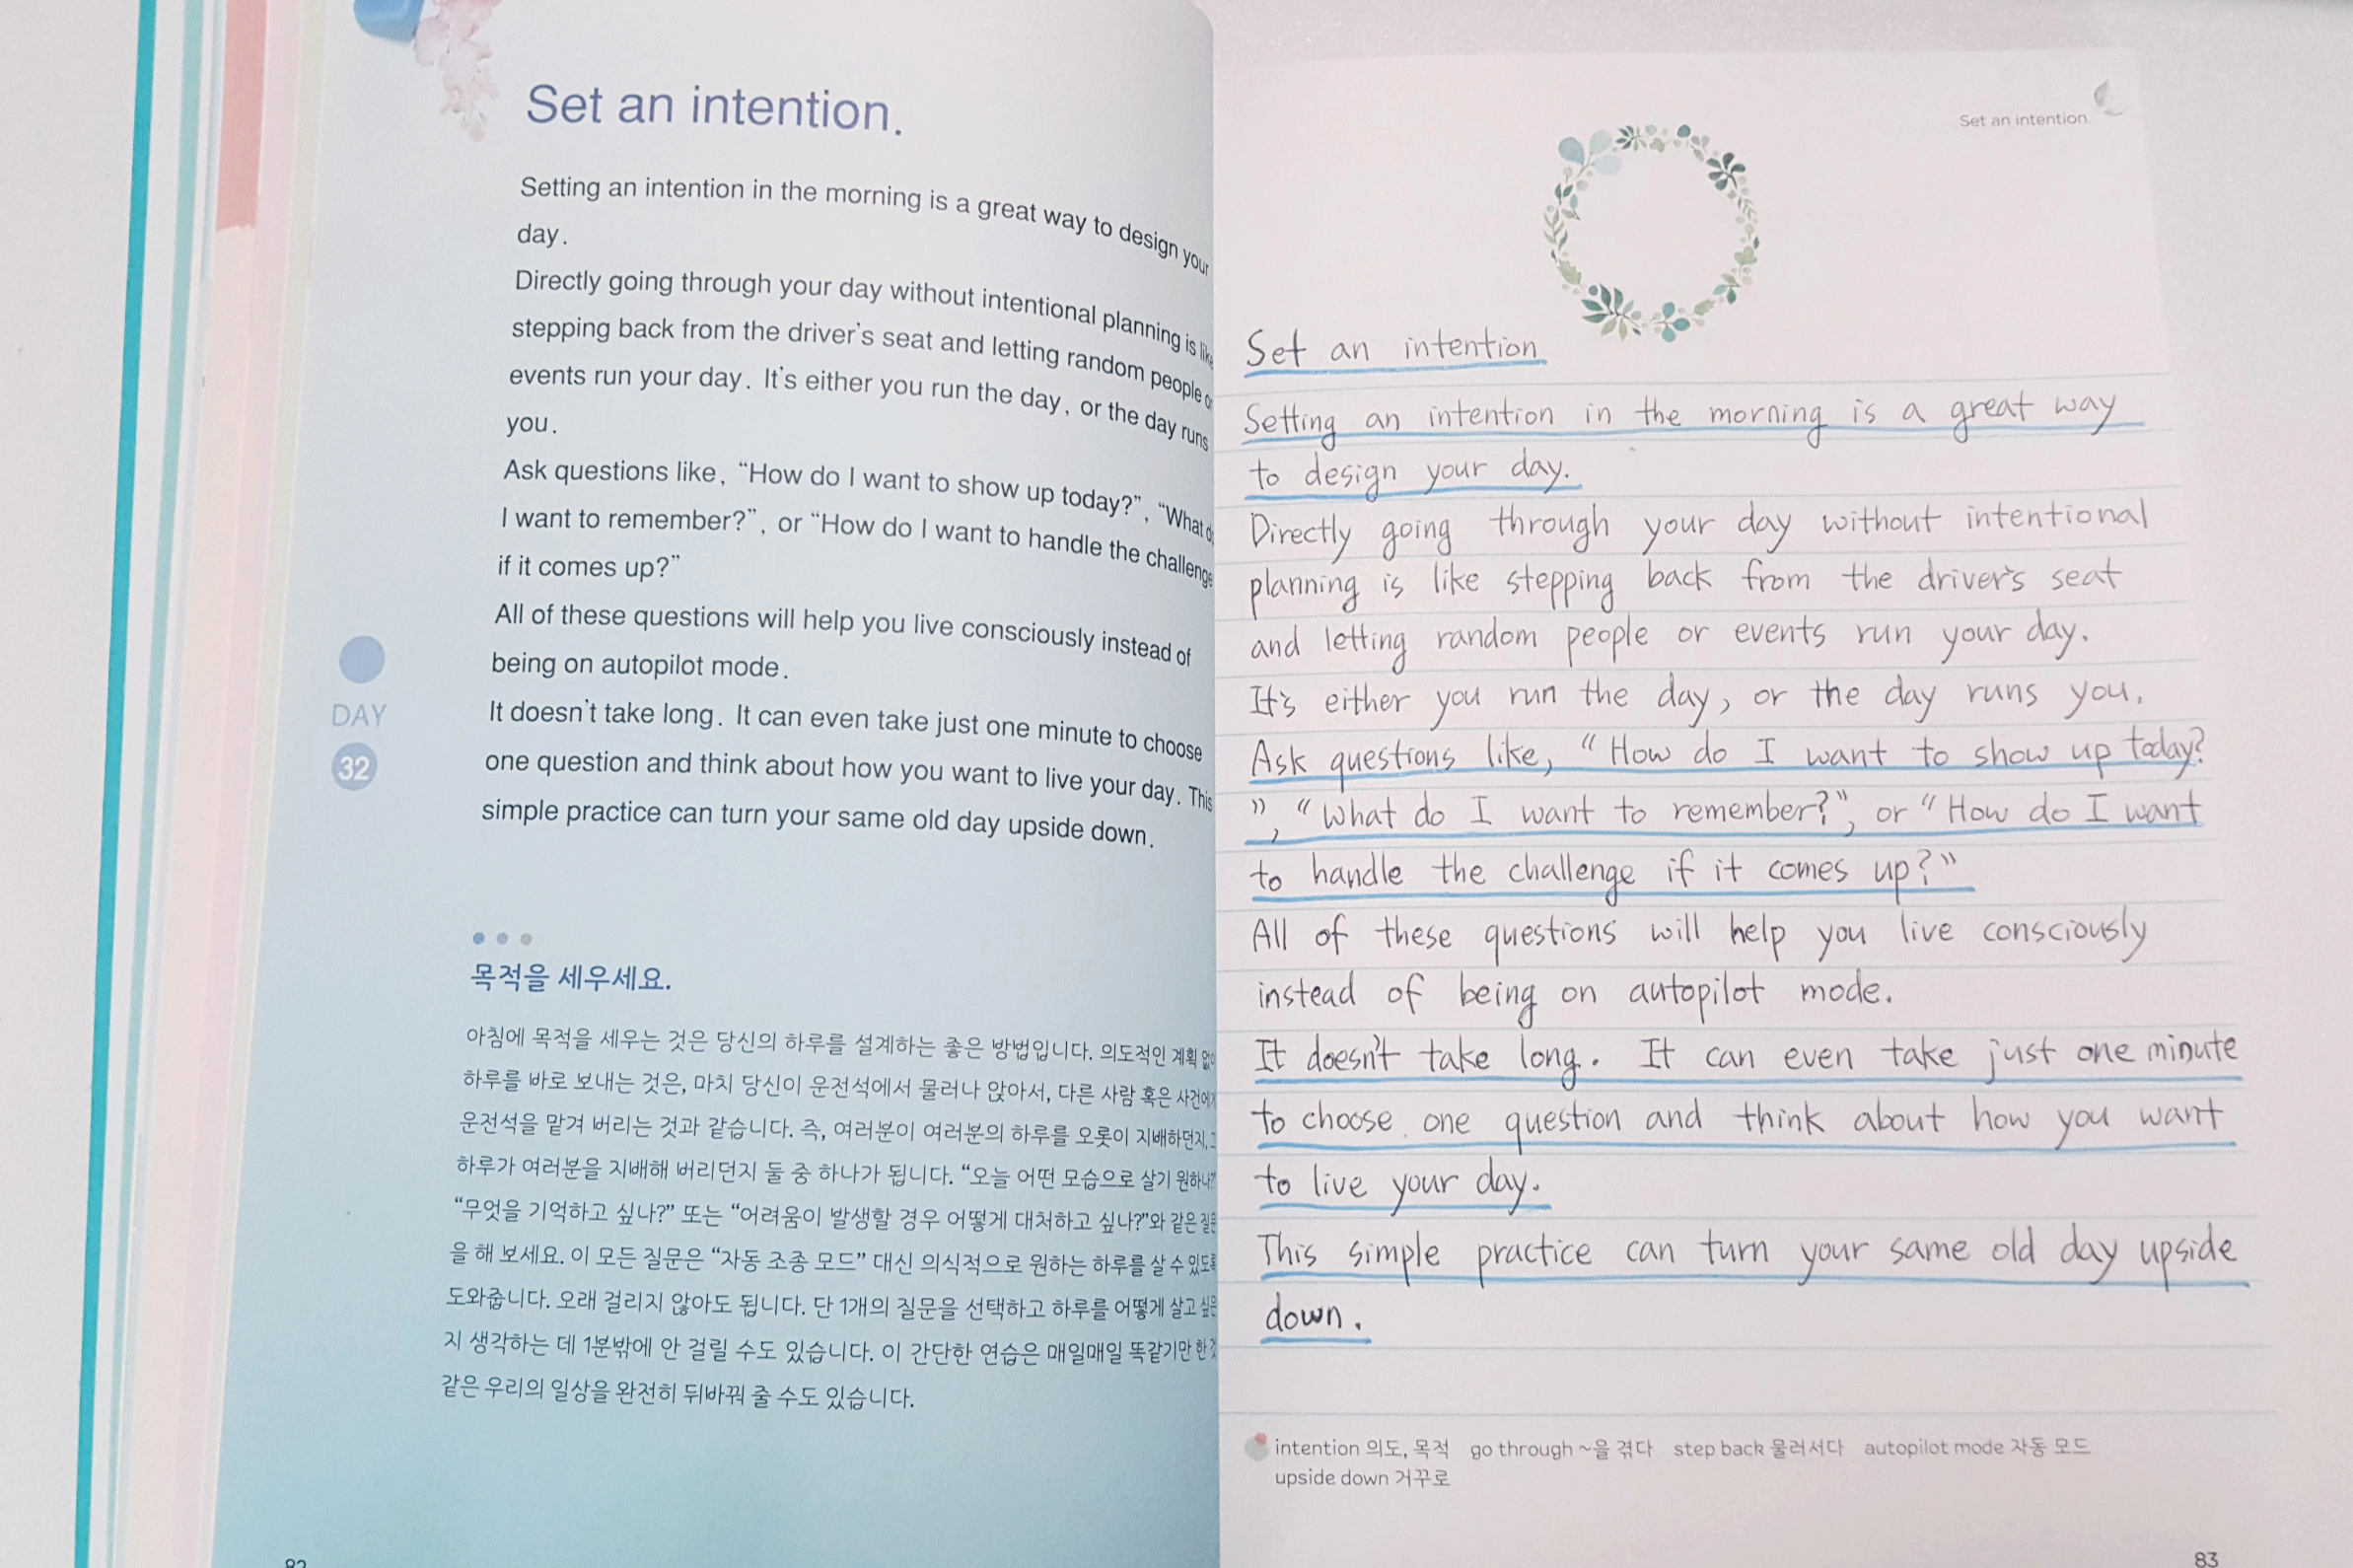 Set an intention.
Setting an intention in the morning is a great way to design your
day.
Directly going through your day without intentional planning is like
stepping back from the driver's seat and letting random people or
events run your day. It's either you run the day, or the day runs
you.
Ask questions like, “How do I want to show up today?”, “What do
I want to remember?”, or “How do I want to handle the challenge
if it comes up?”
All of these questions will help you live consciously instead of
being on autopilot mode.
It doesn't take long. It can even take just one minute to choose
one question and think about how you want to live your day. This
simple practice can turn your same old day upside down.
DAY
32
목적을 세우세요.
아침에 목적을 세우는 것은 당신의 하루를 설계하는 좋은 방법입니다. 의도적인 계획 없이
하루를 바로 보내는 것은, 마치 당신이 운전석에서 물러나 앉아서, 다른 사람 혹은 사건에게
운전석을 맡겨 버리는 것과 같습니다. 즉, 여러분이 여러분의 하루를 오롯이 지배하던지,
하루가 여러분을 지배해 버리던지 둘 중 하나가 됩니다. “오늘 어떤 모습으로 살기 원하나?”
“무엇을 기억하고 싶나?” 또는 “어려움이 발생할 경우 어떻게 대처하고 싶나?”와 같은 질문
을 해 보세요. 이 모든 질문은 “자동 조종 모드” 대신 의식적으로 원하는 하루를 살 수 있도록
도와줍니다. 오래 걸리지 않아도 됩니다. 단 1개의 질문을 선택하고 하루를 어떻게 살고 싶은
지 생각하는 데 1분밖에 안 걸릴 수도 있습니다. 이 간단한 연습은 매일매일 똑같기만 한 것
같은 우리의 일상을 완전히 뒤바꿔 줄 수도 있습니다.
Set an intention.
Set an intention.
Setting an intention in the morning is a great way
to design your day.
Directly going through your day without intentional
planning is like stepping back from the driver's seat
and letting random people or events run your day.
It's either you run the day, or the day runs you.
Ask questions like, “How do I want to show up today?
”, “What do I want to remember?”, or “How do I want
to handle the challenge if it comes up?”
All of these questions will help you live consciously
instead of being on autopilot mode.
It doesn't take long. It can even take just one minute
to choose one question and think about how you want
to live your day.
This simple practice can turn your same old day upside
down.
intention 의도, 목적 go through ~을 겪다 step back 물러서다 autopilot mode 자동 모드
upside down 거꾸로
83